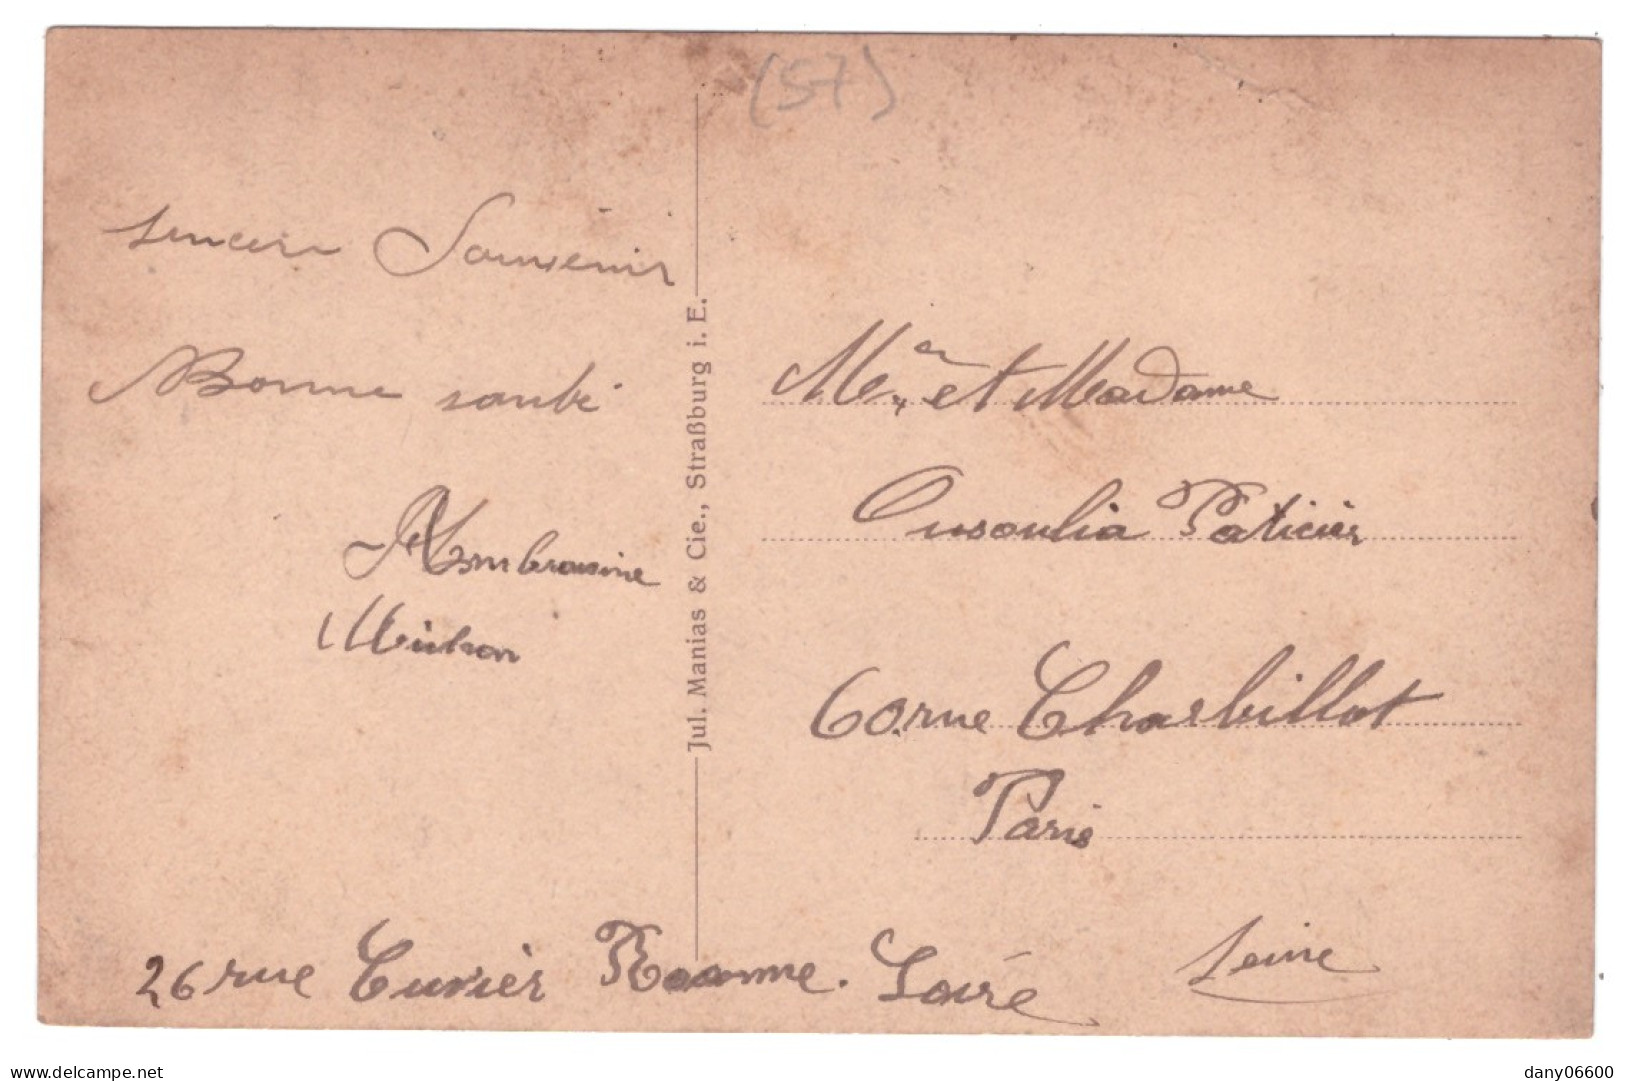 (57)
sincere Souvenir
Bonne santé
Ambrousine
Michon
Jul. Manias & Cie., Straßburg i. E.
Mr et Madame
Ousoulia Paticier
60 rue Charbillot
Paris
Seine
26 rue Cuvier Roanne. Loire
delcampe.net
dany06600